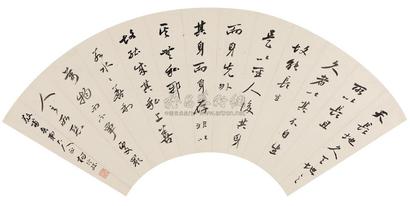 天長地久天地
所以能長且
久者以其不自生
故能長生
是以聖人後其身
而身先外
其身而身存非以
其無私邪
故能成其私上善
若水水善利
萬物而不爭處衆
人之所惡